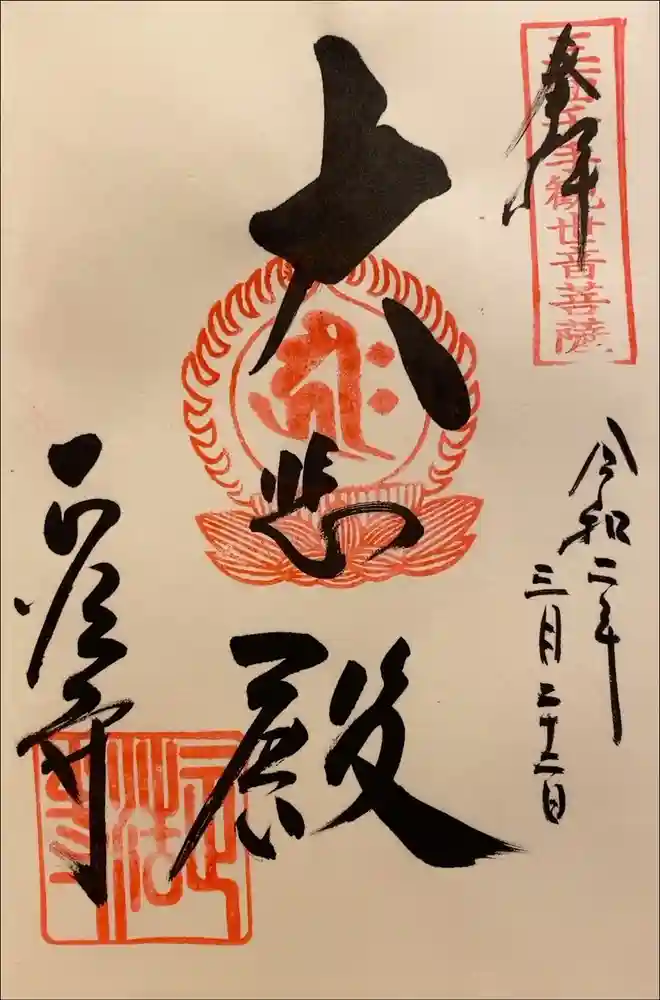 奉拝
千手観世音菩薩
令和二年
三月二十二日
大悲殿
正法寺